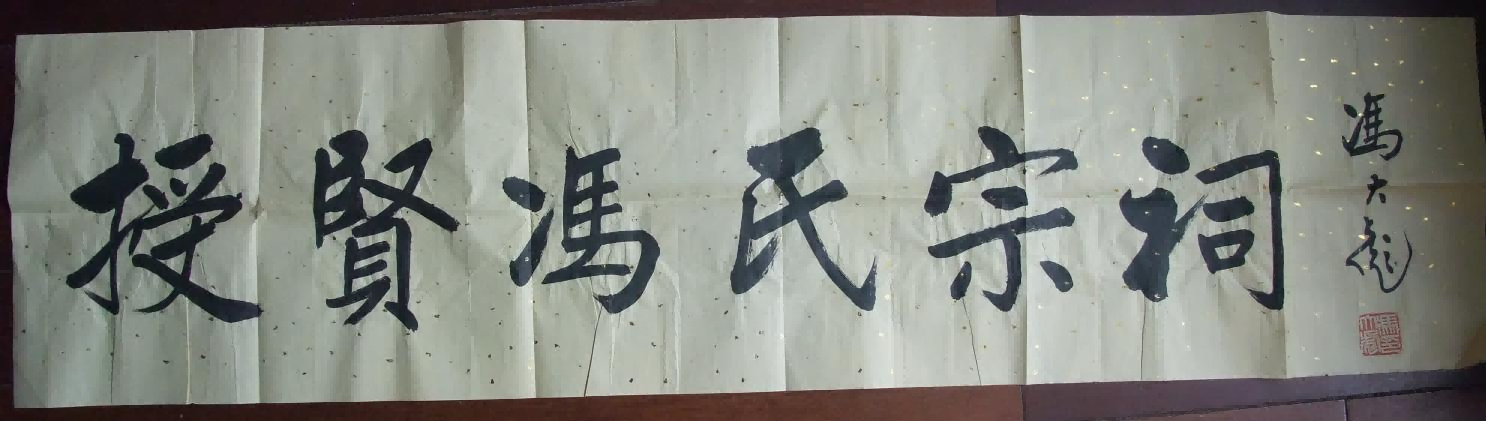 授賢馮氏宗祠
馮大彪